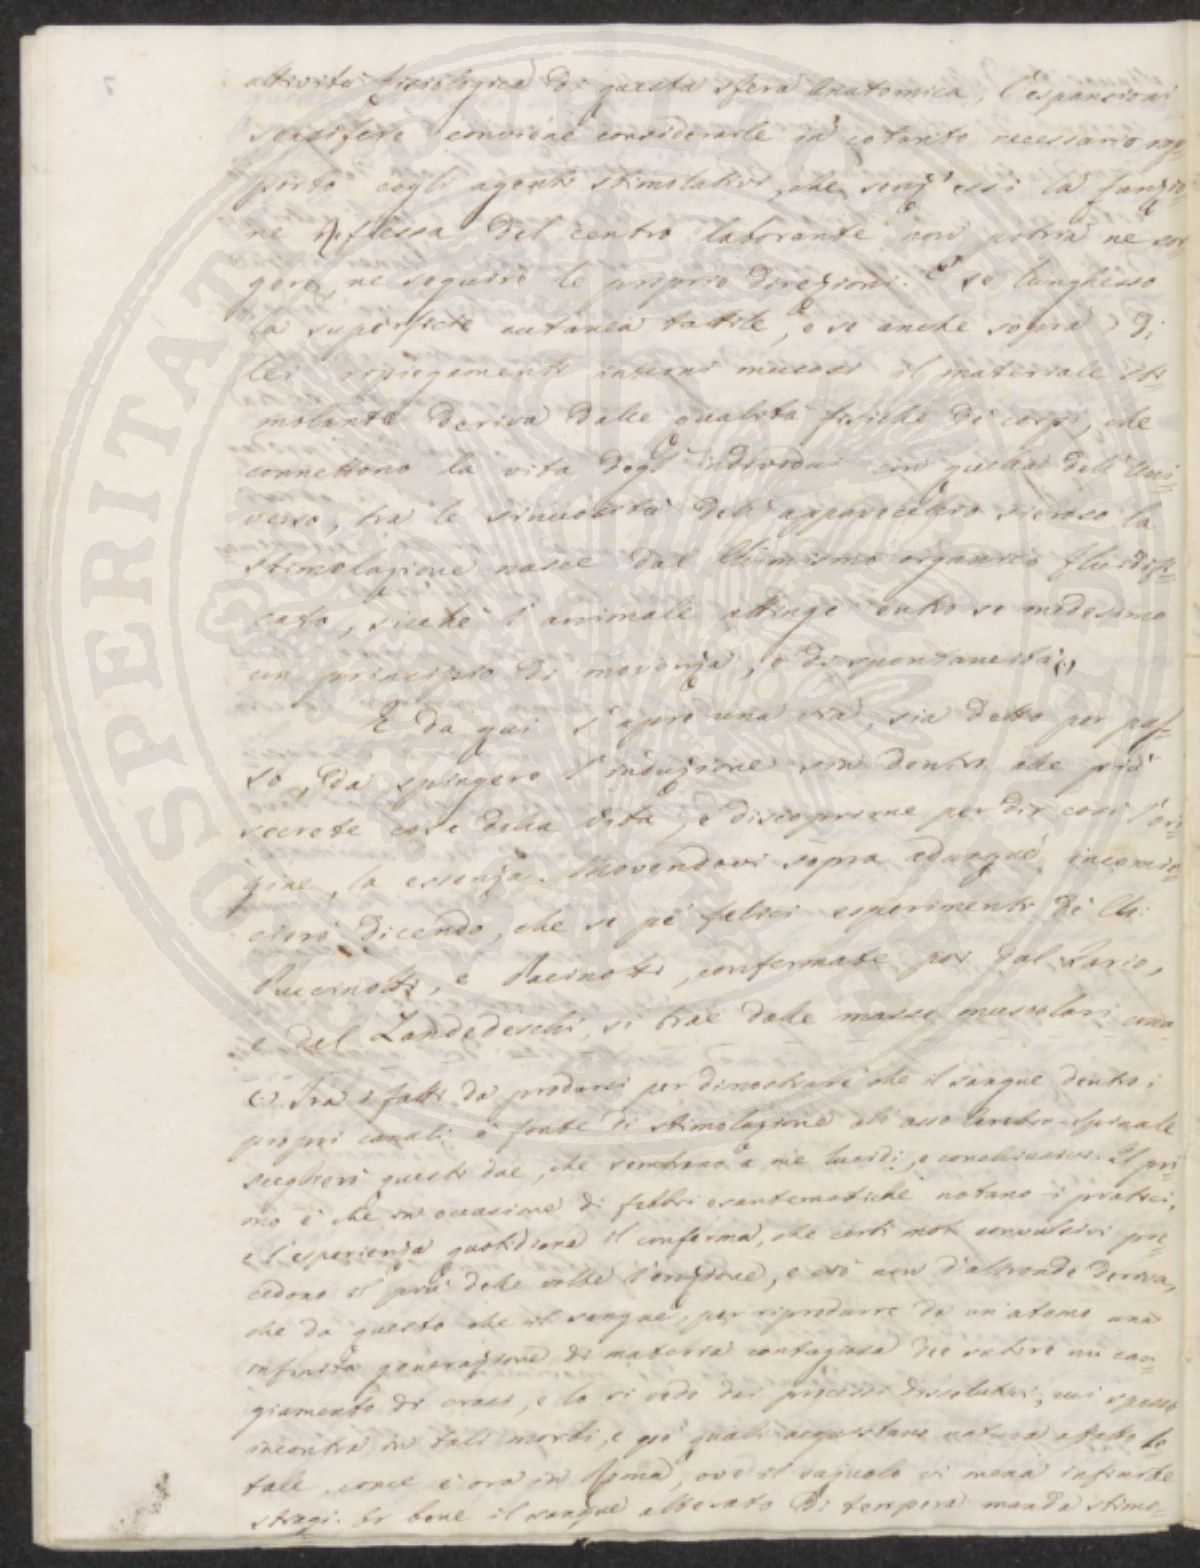 attività fisiologica di questa sfera anatomica, l'espansioni
sensifere conviene considerarle in cotanto necessario rap=
porto cogli agenti stimolatori, che senz'essi la funzio=
ne riflessa del centro laborante non potria ne sor=
gere, ne seguire le proprie direzioni. E se lunghesso
la superficie cutanea tattile, e se anche sopra di
lei ripiegamenti interni mucosi il materiale sti=
molante deriva dalle qualità fisiche de' corpi, che
connettono la vita degl'individui con quella dell'Uni=
verso, tra le sinuosità dell'apparecchio sieroso la
stimolazione nasce dal chimismo organico fluidifi=
cato, sicché l'animale attinge entro se medesimo
un principio di movenza, e di spontaneità.
E da qui s'apre una via, sia detto per pas=
so, da spingere l'induzione sin dentro alle più
secrete cose della vita, e discoprirne per dir così l'ori=
gine, la essenza. Movendovi sopra adunque, incomin=
cierò dicendo, che se pe' felici esperimenti di Ch:
Puccinotti, e Pacinotti, confermate poi dal
e del Zantedeschi, si trae dalle masse muscolari una
Tra i fatti da prodursi per dimostrare che il sangue dentro i
propri canali è fonte di stimolazione all'asse cerebro-spinale
sceglierò questi due, che sembrano a me lucidi, e conchiusivi. Il pri=
mo è che in occasione di febbri esantematiche notano i pratici,
e l'esperienza quotidiana il conferma, che certi moti convulsivi pre=
cedono il più delle volte l'eruzione, e ciò non d'altronde deriva,
che da questo che il sangue, per riprodurre da un atomo una
infinita generazione di materia contagiosa dee subire un can=
giamento di crasi, e lo si vede dai processi dissolutivi, cui spesso
incontra in tali morbi, e pe' quali acquistano natura affatto le=
tale, come è ora in Roma, ove il vajuolo vi mena infinite
stragi. Or bene il sangue alterato di tempera manda stimo=